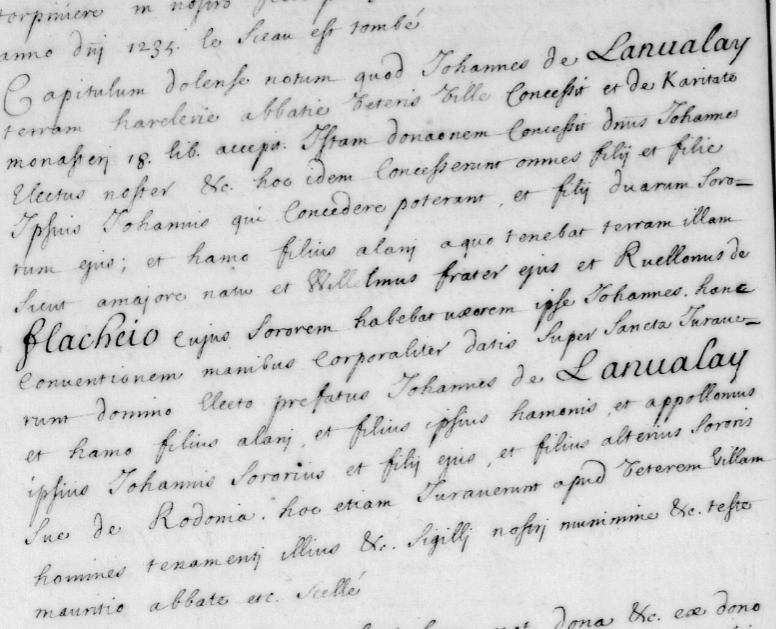 torpiniere in nostro
anno dnj 1235. le Sceau est tombé
Capitulum dolense notum quod Johannes de Lanualay
terram harelerie abbatie Veteris Ville Concessit et de Karitate
monasterj 18. lib. accepit. Istam donaonem Concessit dnus Johannes
Electus noster &c. hoc idem Concesserunt omnes filij et filie
Ipsius Johannis qui Concedere poterant, et filij duarum Soro=
rum ejus; et hamo filius alanj aquo tenebat terram illam
Sicut amajore natu et Willelmus frater ejus et Ruellonus de
flacheio Cujus Sororem habebat uxorem ipse Johannes. hanc
Conventionem manibus Corporaliter datis Super Sancta Jurave=
runt domino Electo prefatus Johannes de Lanualay
et hamo filius alanj, et filius ipsius hamonis, et appollonius
ipsius Johannis Sororius et filij ejus, et filius alterius Sororis
Sue de Rodonia. hoc etiam Juraverunt apud Veterem Villam
homines tenamentj illius &c. Sigillj nostrj munimine &c. teste
mauritio abbate etc. Scellé
dona &c. ex dono